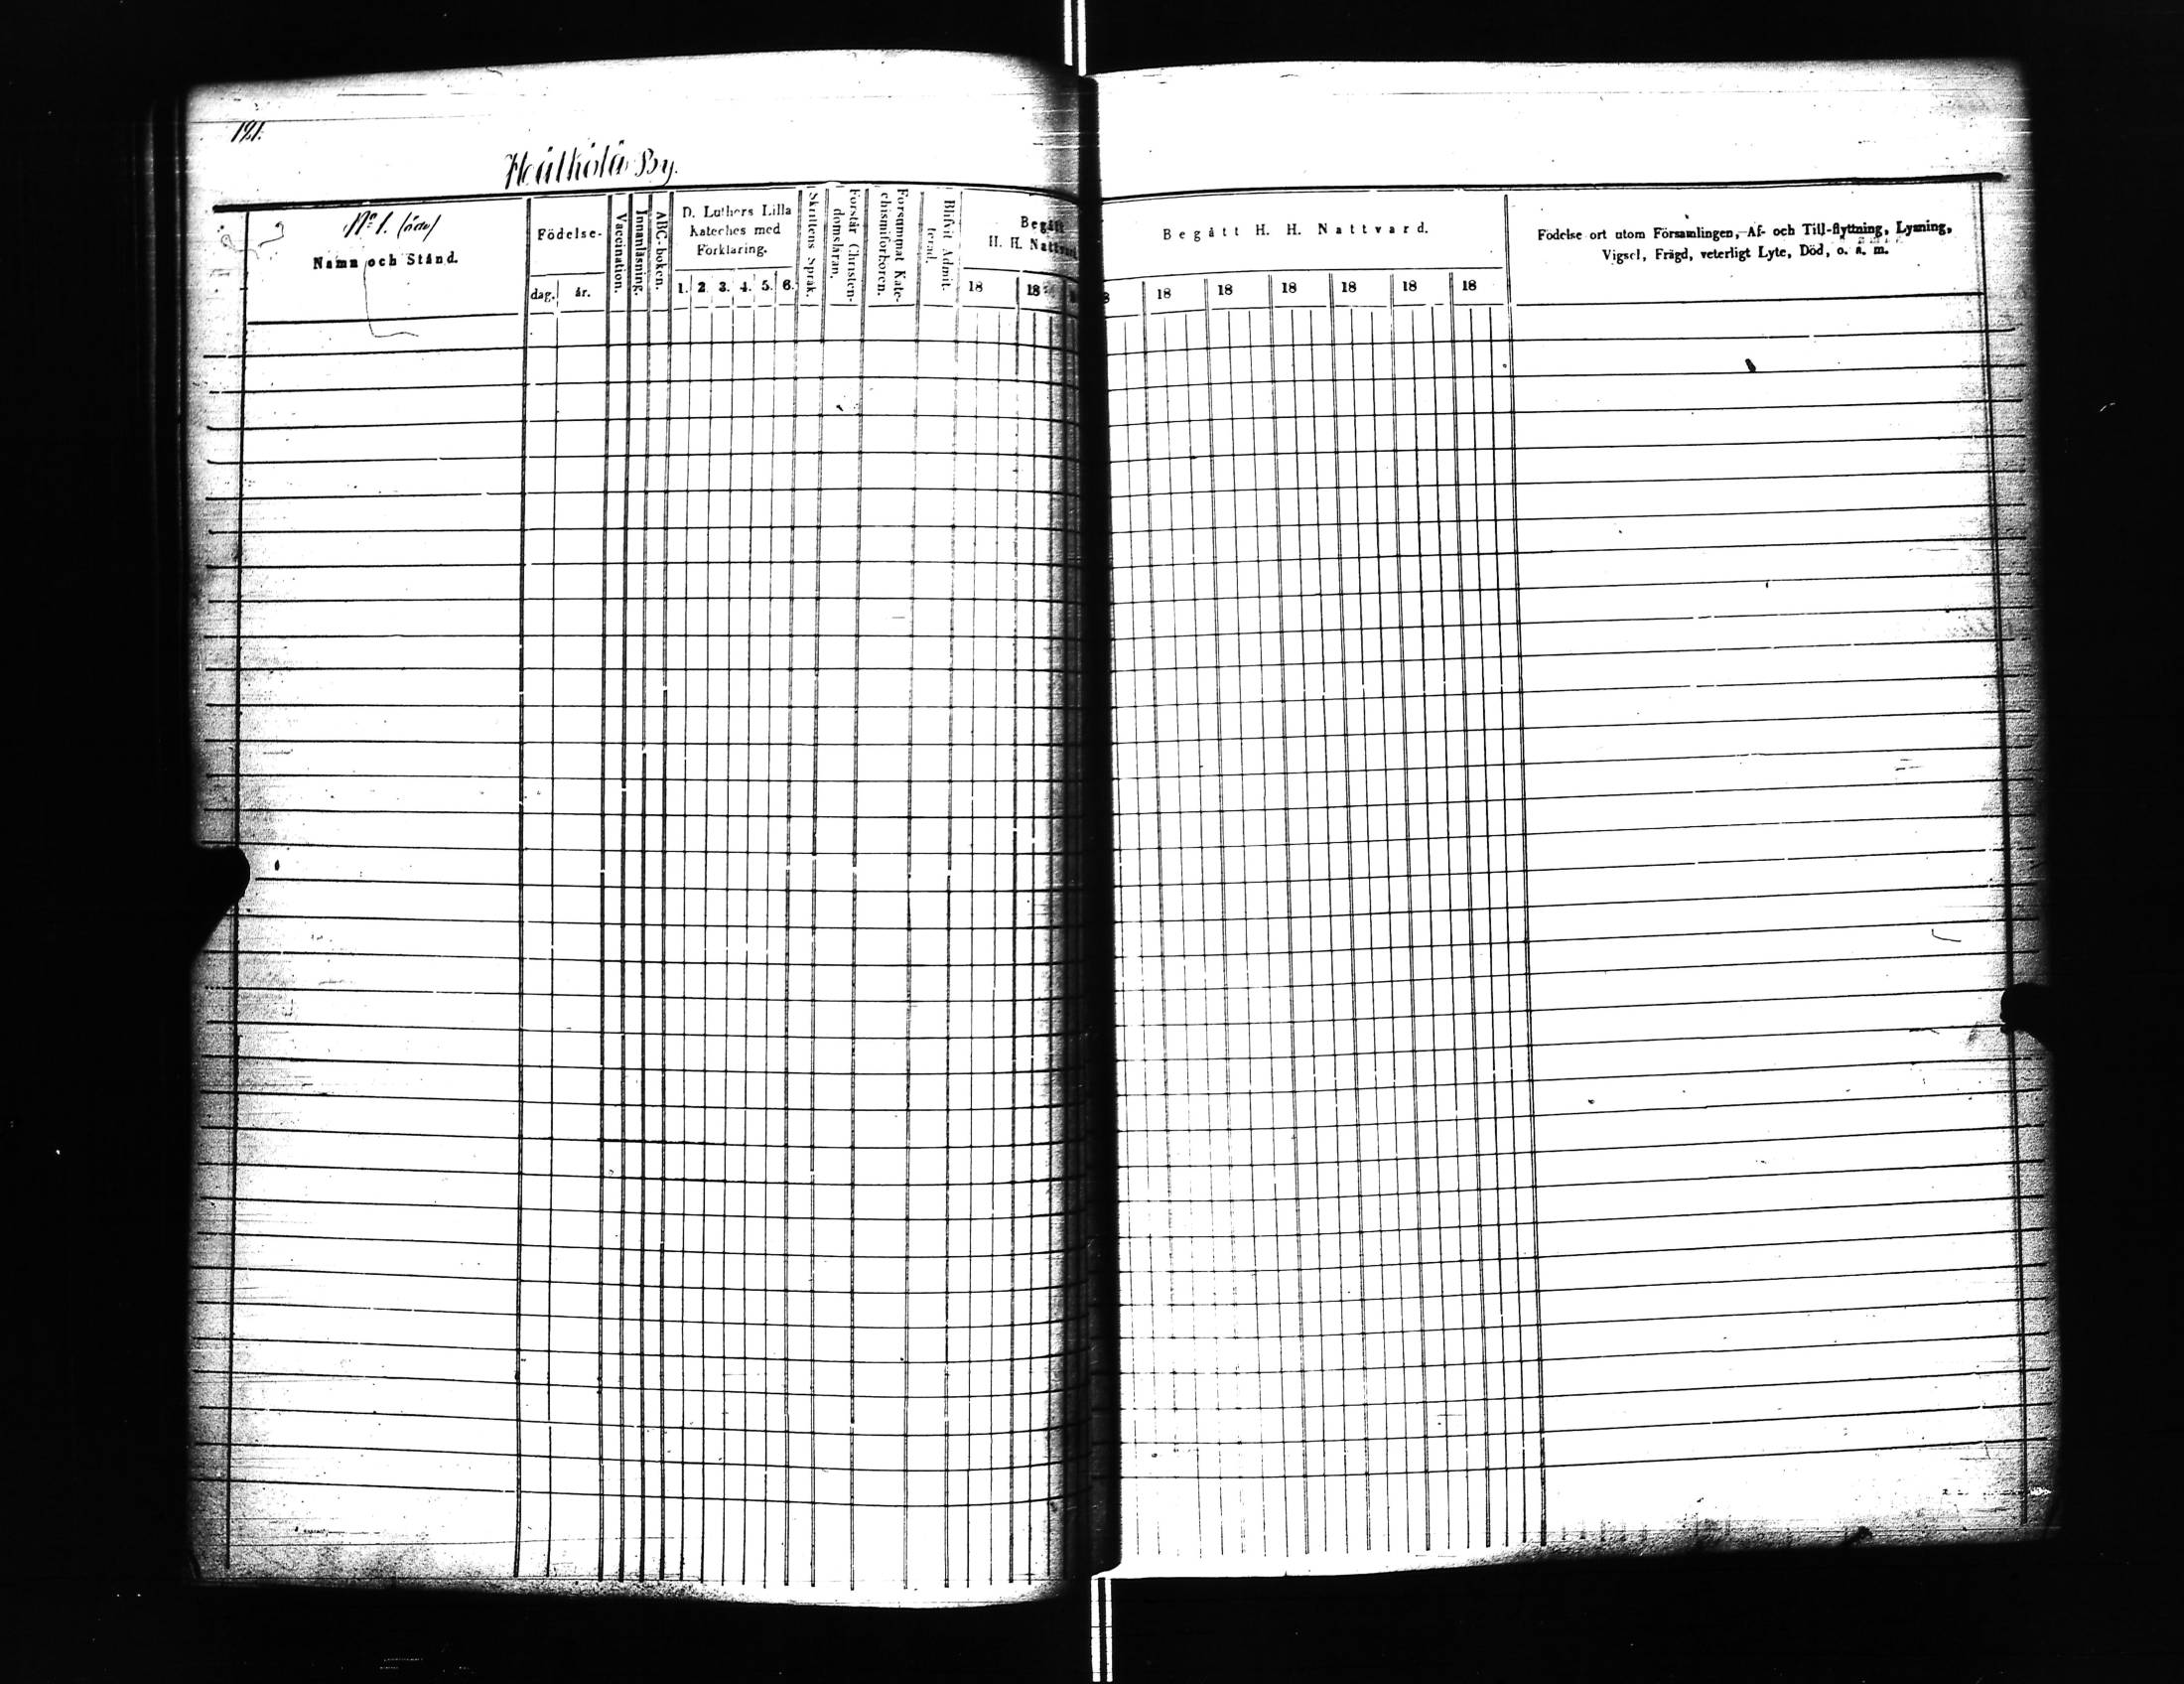 121.
By.
Nº 1. (öde)
Namn och Stånd.
Födelse-
dag. år.
Vaccination.
Innanläsning.
ABC-boken.
D. Luthers Lilla
Kateches med
Förklaring.
1. 2. 3. 4. 5. 6.
Skriftens Språk.
Förstår Christen-
domsläran.
Försummat Kate-
chismiförhören.
Blifvit Admit-
terad.
Begått
H. H. Nattvard
18 18
Begått H. H. Nattvard.
18 18 18 18 18 18
Födelse ort utom Församlingen, Af- och Till-flyttning, Lysning,
Vigsel, Frägd, veterligt Lyte, Död, o. a. m.